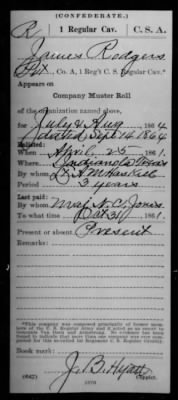 (CONFEDERATE.)
R | 1 Regular Cav. | C. S. A.
James Rodgers
Pvt, Co. A, 1 Reg't C. S. Regular Cav.*
Appears on
Company Muster Roll
of the organization named above,
for July & Aug, 1864
dated Sept 14 1864
Enlisted:
When April 25, 1861.
Where Indianola Texas
By whom Lt H M Haskell
Period 3 years
Last paid:
By whom Maj N. C. Jones
To what time Oct 31, 1861.
Present or absent Present
Remarks:
*This company was composed principally of former members of the U. S. Regular Army and it acted as an escort to Generals Van Dorn and Armstrong. No evidence has been found that more than one company was completed for this service in the Regular Confederate Cavalry.
Book mark:
J. B. Hyatt
(642) Copyist.